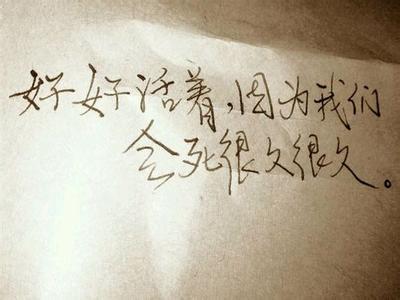 好好活着,因为我们
会死很久很久。